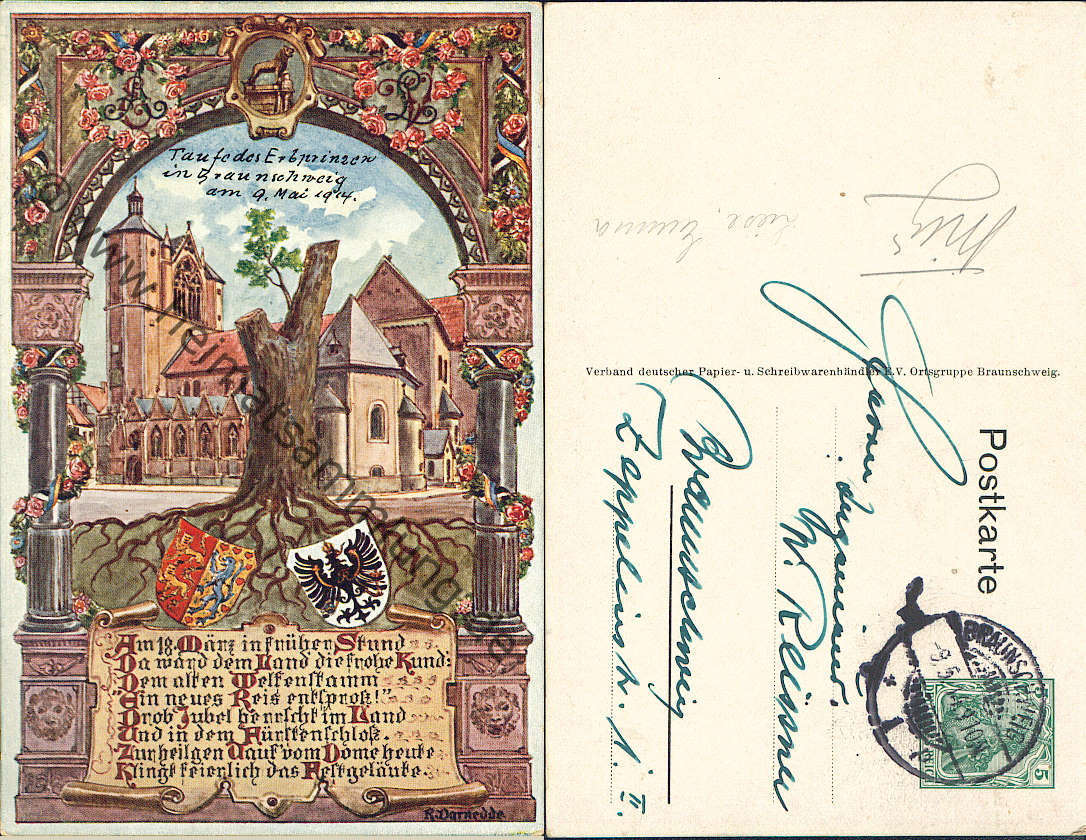 Taufe des Erbprinzen
in Braunschweig
am 9. Mai 1914.
Am 18. März in früher Stund
Da ward dem Land die frohe Kund:
Dem alten Welfenstamm
"Ein neues Reis entsproß!"
Drob Jubel herrscht im Land
Und in dem Fürstenschloß.
Zur heilgen Tauf vom Dome heute
Klingt feierlich das Festgeläute.
R. Darnedde
www.heimatsammlung.de
Verband deutscher Papier- u. Schreibwarenhändler E.V. Ortsgruppe Braunschweig.
Postkarte
Herrn Ingenieur
W. Reissner
Braunschweig
Zeppelinstr. 1. II.
BRAUNSCHWEIG
5